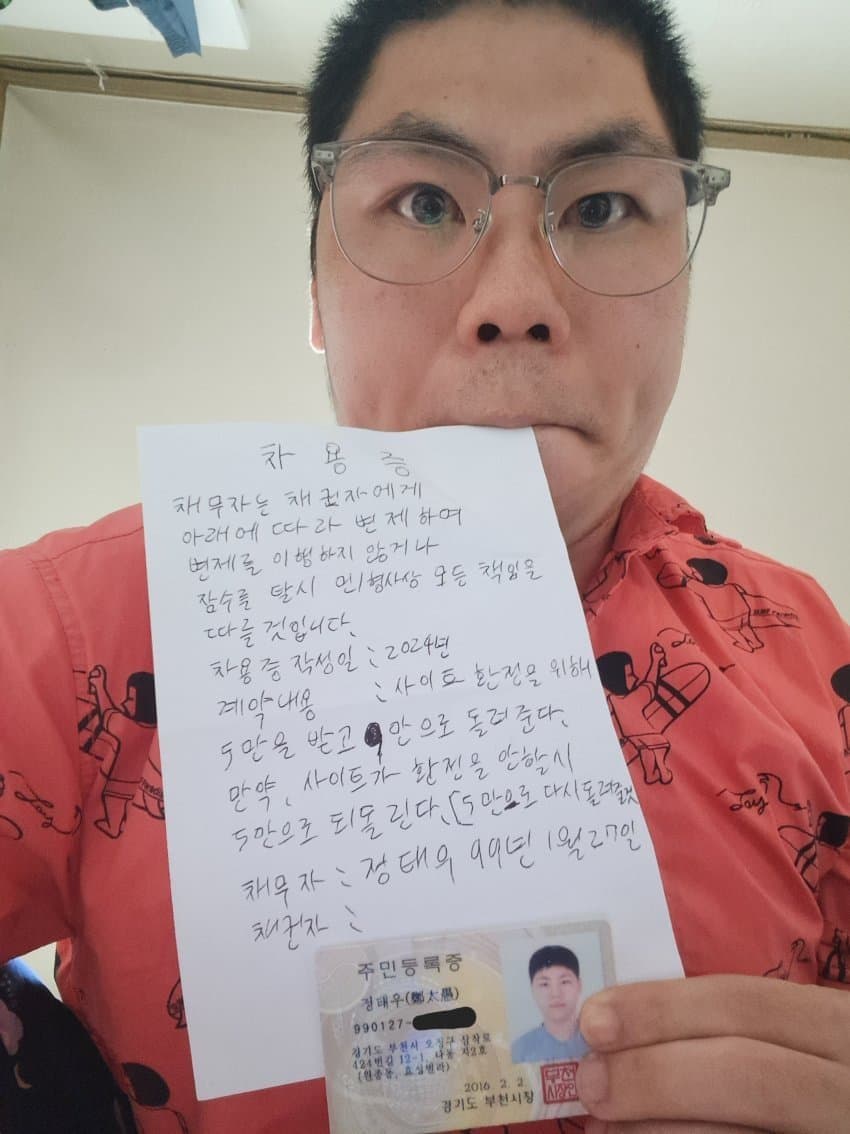 차용증
채무자는 채권자에게
아래에 따라 변제하여
변제를 이행하지 않거나
잠수를 탈시 민/형사상 모든 책임을
따를것입니다.
차용증 작성일 : 2024년
계약내용 : 사이트 환전을 위해
5만을 받고 9만으로 돌려준다.
만약, 사이트가 환전을 안할시
5만으로 되돌린다.(5만으로 다시돌려줄것
채무자 : 정태우 99년 1월 27일
채권자 :
주민등록증
정태우(鄭太愚)
990127-
경기도 부천시 오정구 삼작로
424번길 12-1, 나동 지2호
(원종동, 효실빌라)
2016. 2. 2.
경기도 부천시장